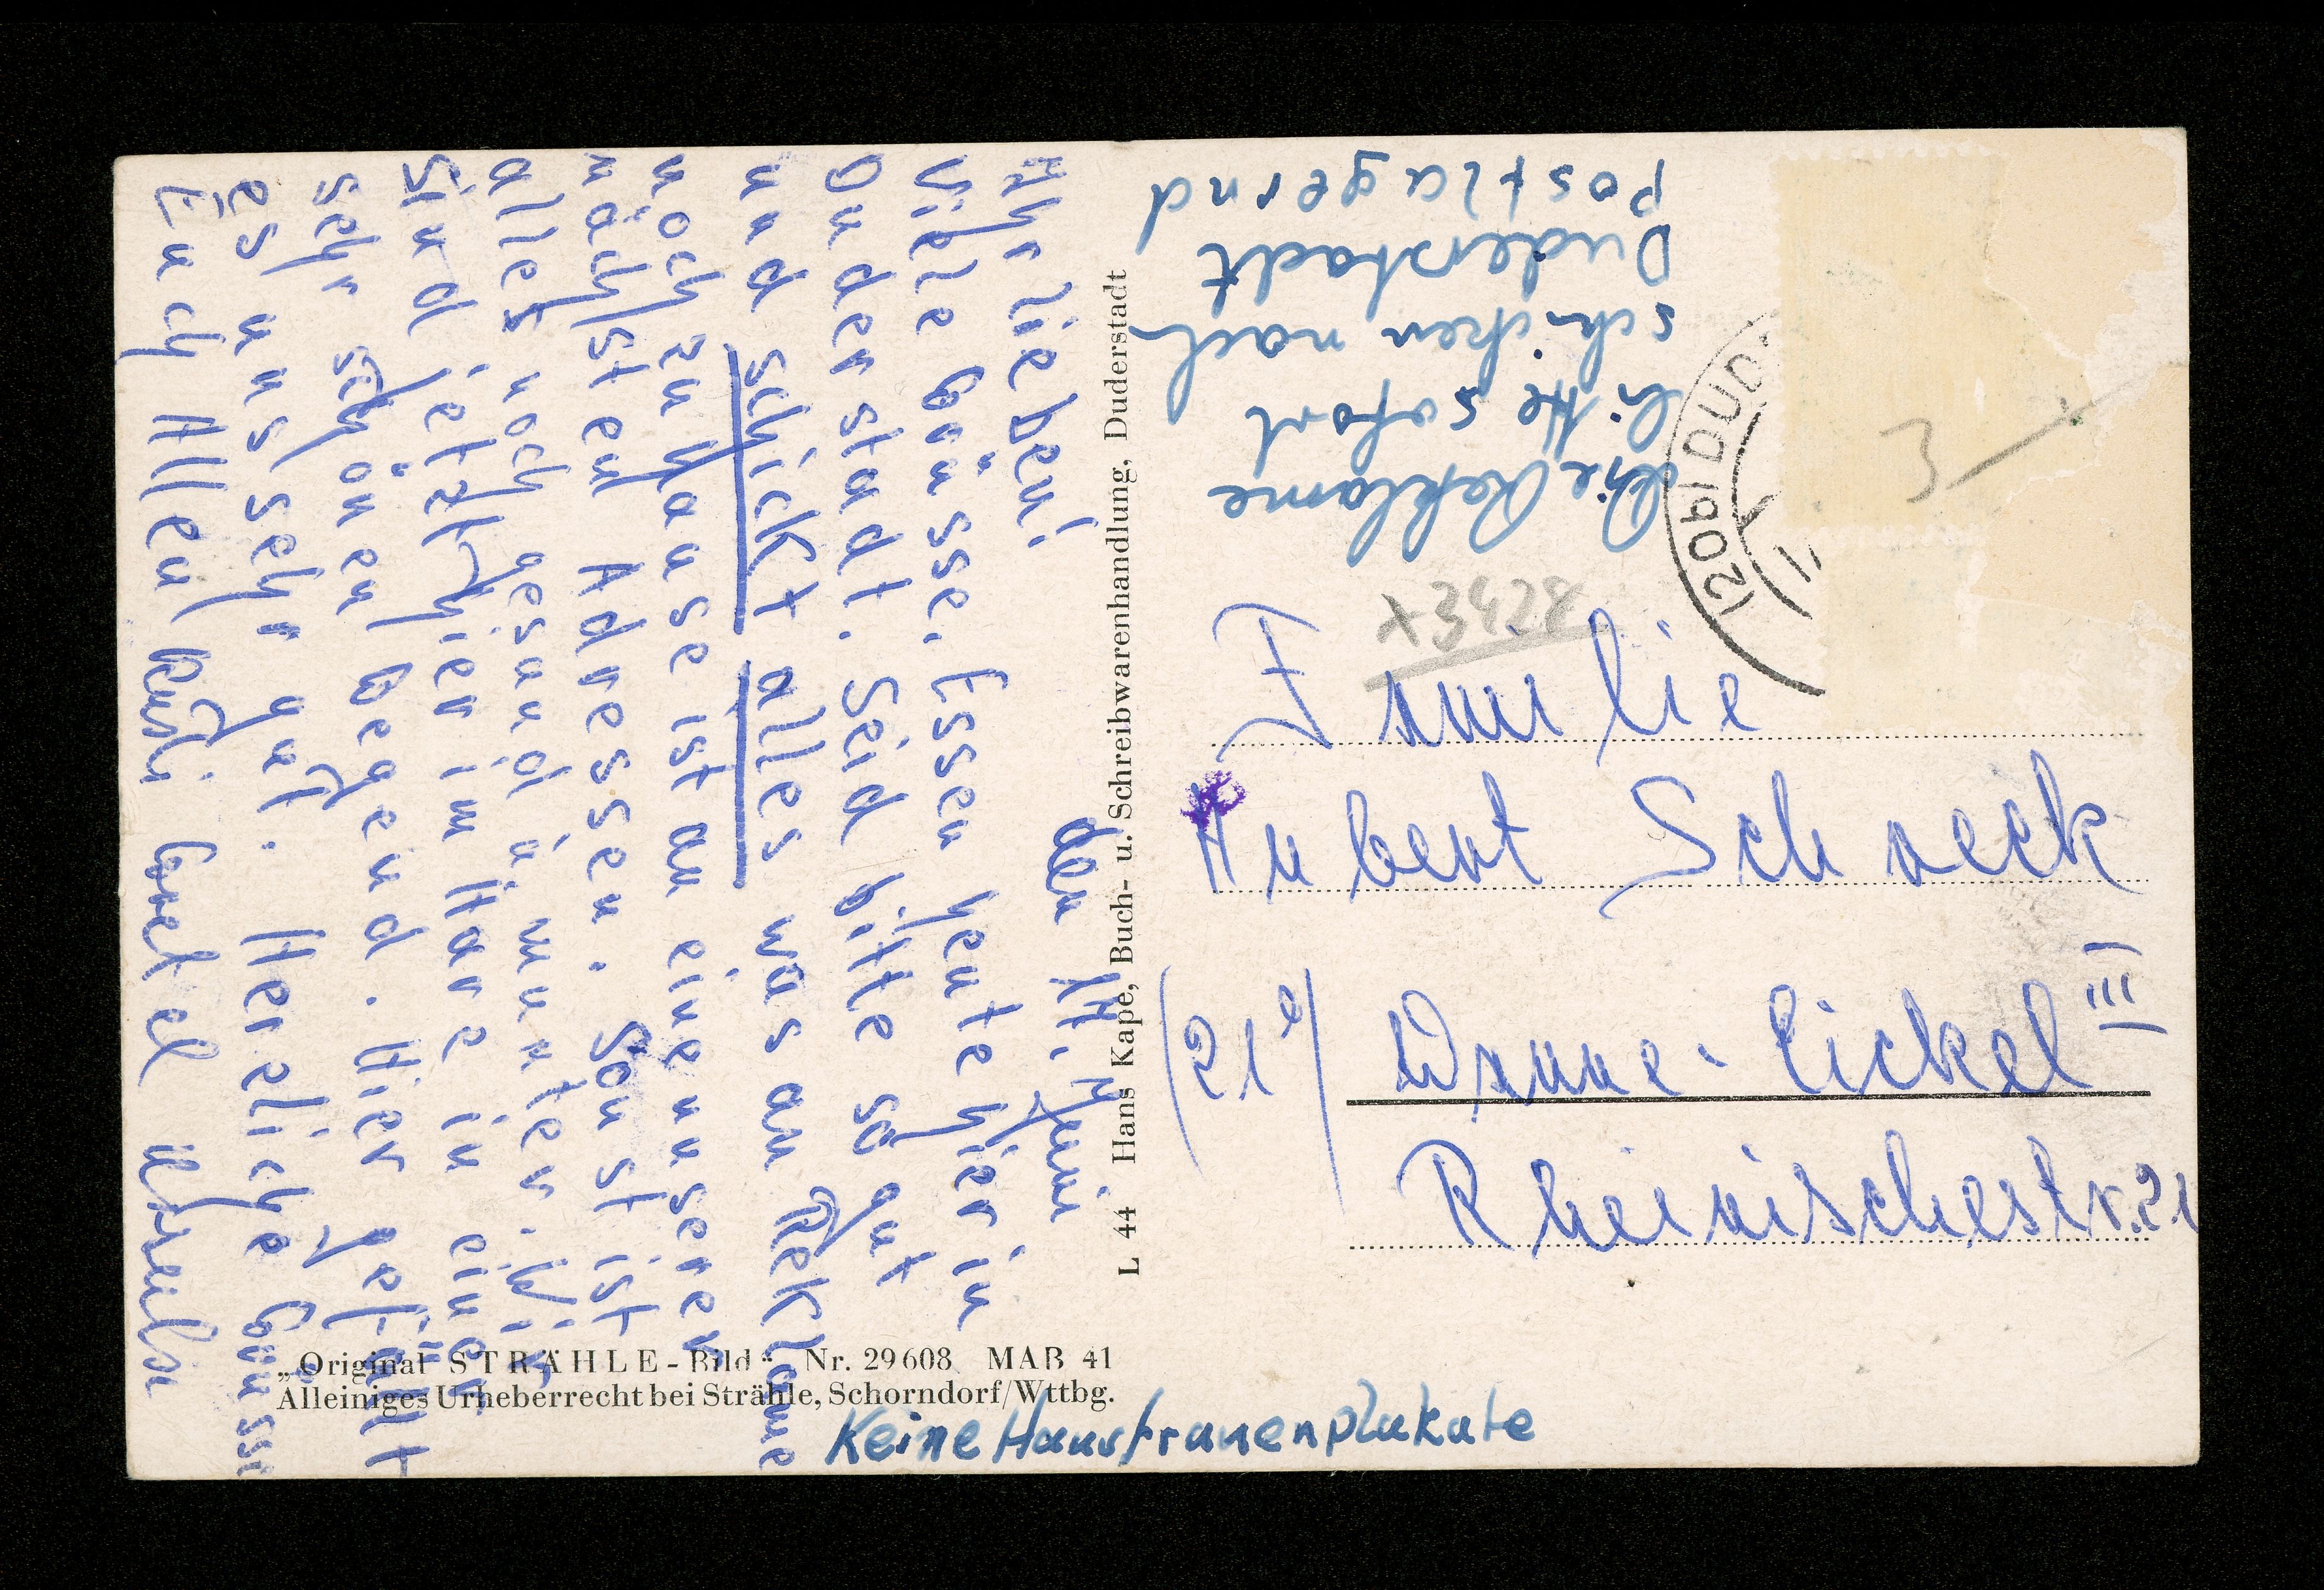 den 14. Juni
Ihr lieben!
Viele Grüsse. Essen heute hier in
Duderstadt. Seid bitte so gut
und schickt alles was an Reklame
noch zu Hause ist an eine unserer
nächsten Adressen. Sonst ist
alles noch gesund u. munter. Wir
sind jetzt hier im Harz in einer
sehr schönen Gegend. Hier gefällt
es uns sehr gut. Herzliche Grüsse
Euch Allen
Die Reklame
bitte sofort
schicken nach
Duderstadt
postlagernd
(20b) DUD
3
x3428
Familie
Hubert Schneck
(21b) Wanne-Eickel III
Rheinischestr. 21
L 44 Hans Kape, Buch- u. Schreibwarenhandlung, Duderstadt
„Original STRÄHLE-Bild“ Nr. 29608 MAB 41
Alleiniges Urheberrecht bei Strähle, Schorndorf/Wttbg.
Keine Hausfrauenplakate